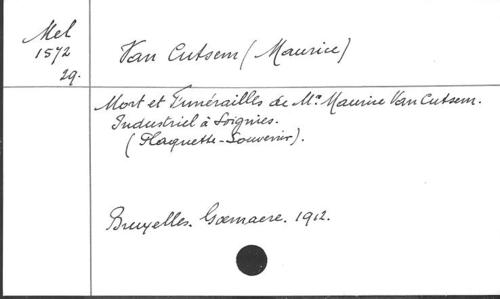 Mel
1572
29.
Van Cutsem (Maurice)
Mort et Funérailles de Mr Maurice Van Cutsem.
Industriel à Soignies.
(Plaquette-Souvenir).
Bruxelles. Goemaere. 1912.